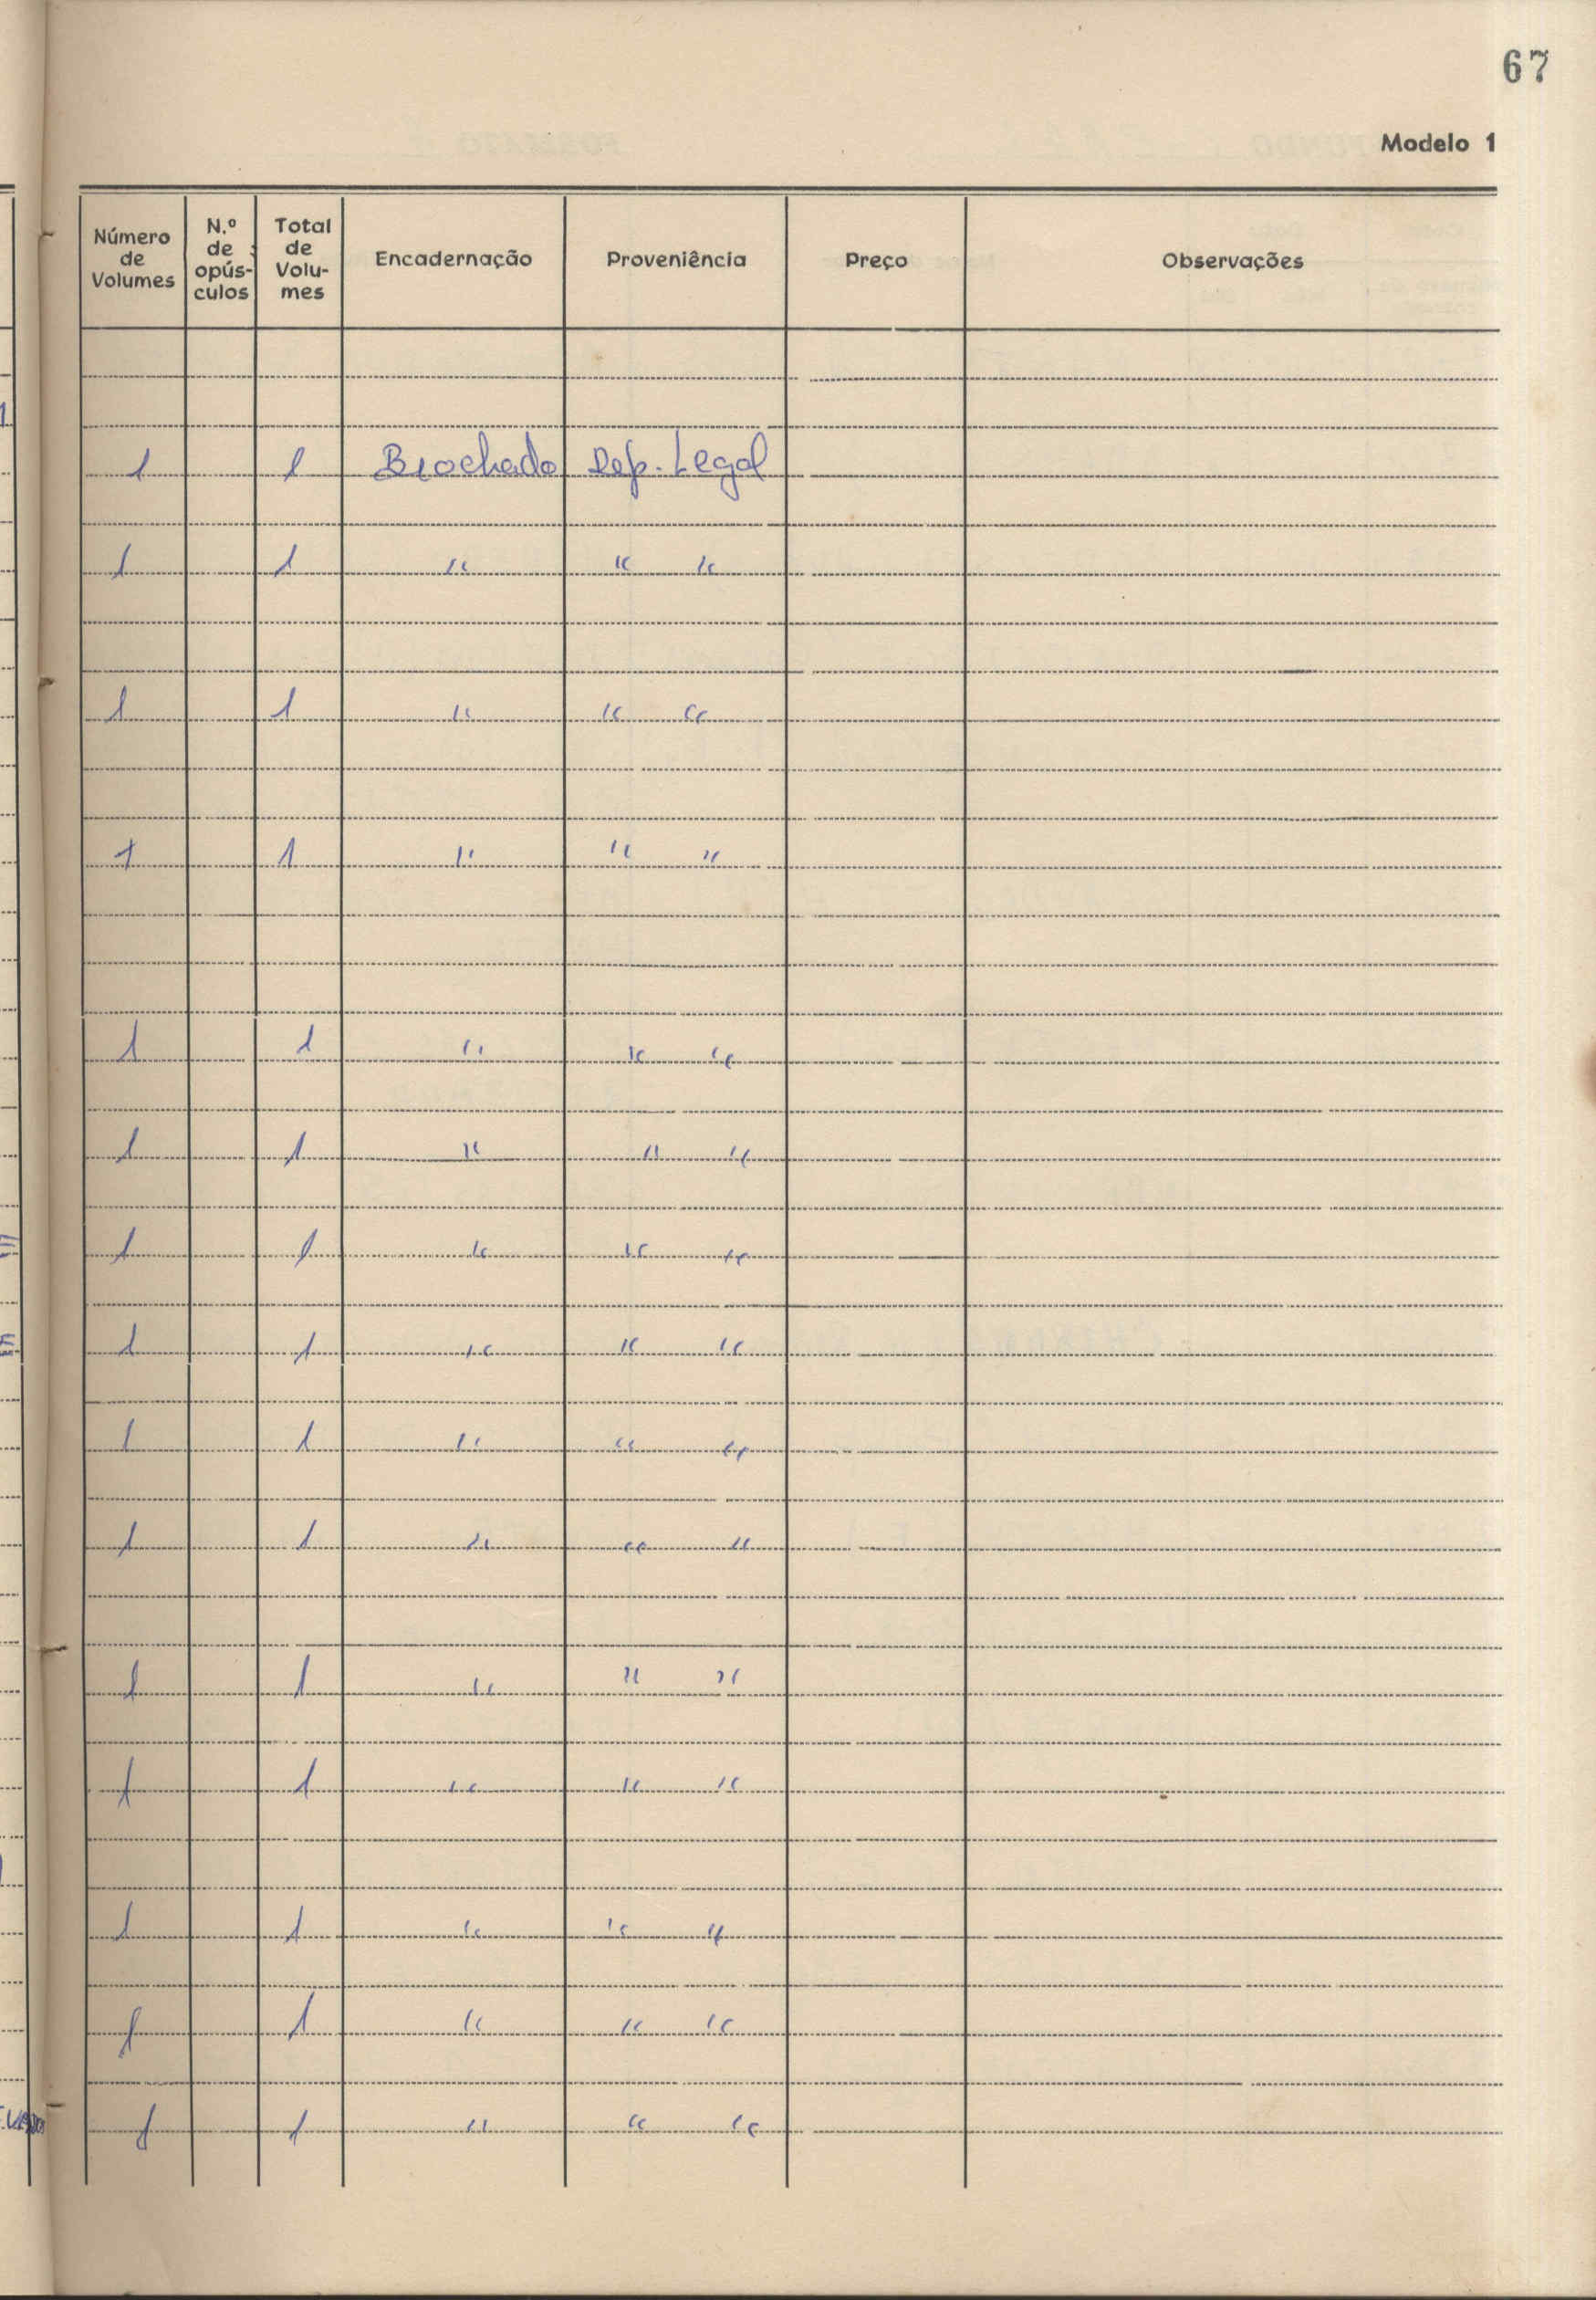 67
Modelo 1
Número de Volumes | N.º de opús-culos | Total de Volu-mes | Encadernação | Proveniência | Preço | Observações
1 | | 1 | Brochado | Dep. Legal
1 | | 1 | " | " "
1 | | 1 | " | " "
1 | | 1 | " | " "
1 | | 1 | " | " "
1 | | 1 | " | " "
1 | | 1 | " | " "
1 | | 1 | " | " "
1 | | 1 | " | " "
1 | | 1 | " | " "
1 | | 1 | " | " "
1 | | 1 | " | " "
1 | | 1 | " | " "
1 | | 1 | " | " "
1 | | 1 | " | " "